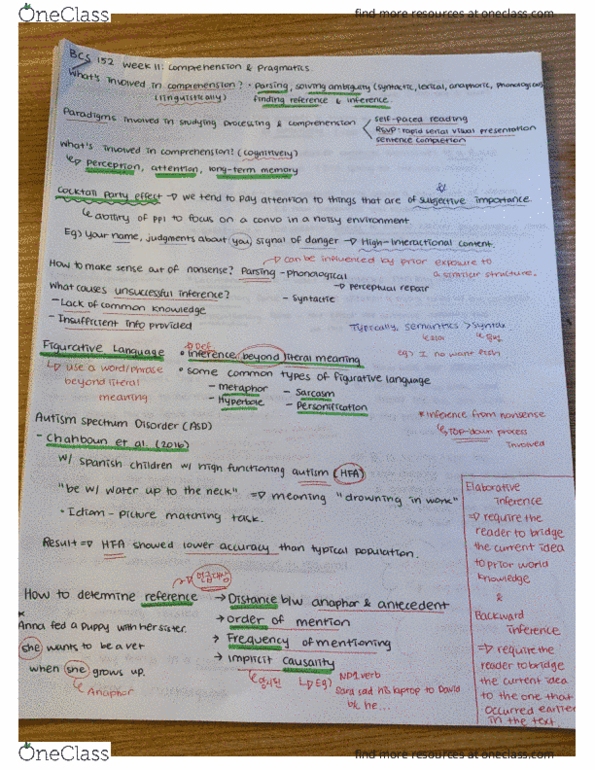 OneClass
find more resources at oneclass.com
BCS 152 Week 11: Comprehension & Pragmatics
What's involved in comprehension? • Parsing, solving ambiguity (syntactic, lexical, anaphoric, phonological)
(linguistically) finding reference & inference
Paradigms involved in studying processing & comprehension
self-paced reading
RSVP: rapid serial visual presentation
sentence completion
What's involved in comprehension? (cognitively)
↳ perception, attention, long-term memory
Cocktail party effect → we tend to pay attention to things that are of subjective importance.
&
↳ ability of ppl to focus on a convo in a noisy environment
Eg) your name, judgments about you, signal of danger → High-interactional content.
→ can be influenced by prior exposure to
a similar structure.
How to make sense out of nonsense? Parsing - phonological
→ perceptual repair
- syntactic
What causes unsuccessful inference?
- Lack of common knowledge
- Insufficient info provided
Typically, semantics > syntax
eg) I no want fish
Figurative Language
→ Def
• inference beyond literal meaning
↳ use a word/phrase
beyond literal
meaning
• some common types of figurative language
- metaphor - Sarcasm
- Hyperbole - Personification
* inference from nonsense
↳ Top-down process
involved
Autism Spectrum Disorder (ASD)
- Chahboun et al. (2016)
w/ Spanish children w/ high functioning autism (HFA)
"be w/ water up to the neck" => meaning "drowning in work"
• Idiom - picture matching task.
Result => HFA showed lower accuracy than typical population.
Elaborative
inference
=> require the
reader to bridge
the current idea
to prior world
knowledge
&
Backward
inference
=> require the
reader to bridge
the current idea
to the one that
occurred earlier
in the text.
언급대상
How to determine reference
→ Distance b/w anaphor & antecedent
→ order of mention
→ Frequency of mentioning
→ implicit causality
Anna fed a puppy with her sister.
she wants to be a vet
when she grows up.
↳ Anaphor
↳ Eg) NP1 verb
Sara said his laptop to David
b/c he...
OneClass
find more resources at oneclass.com